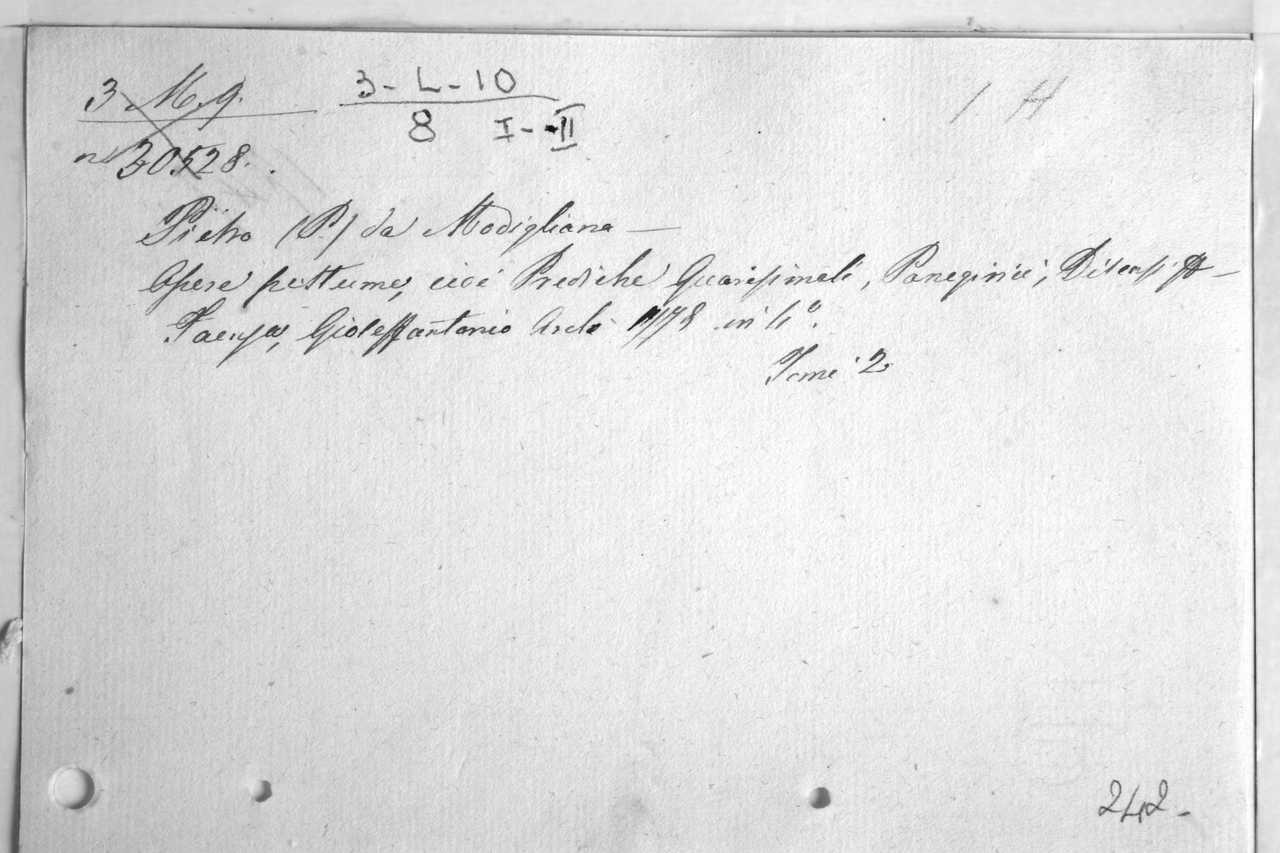 3. M. 9.
3-L-10
8 I-II
1. H
n. 30528.
Pietro (P.) da Modigliana —
Opere postume, cioè Prediche Quaresimali, Panegirici, Discorsi &
Faenza, Gioseffantonio Archi 1778 in 4°.
Tomi 2
242-